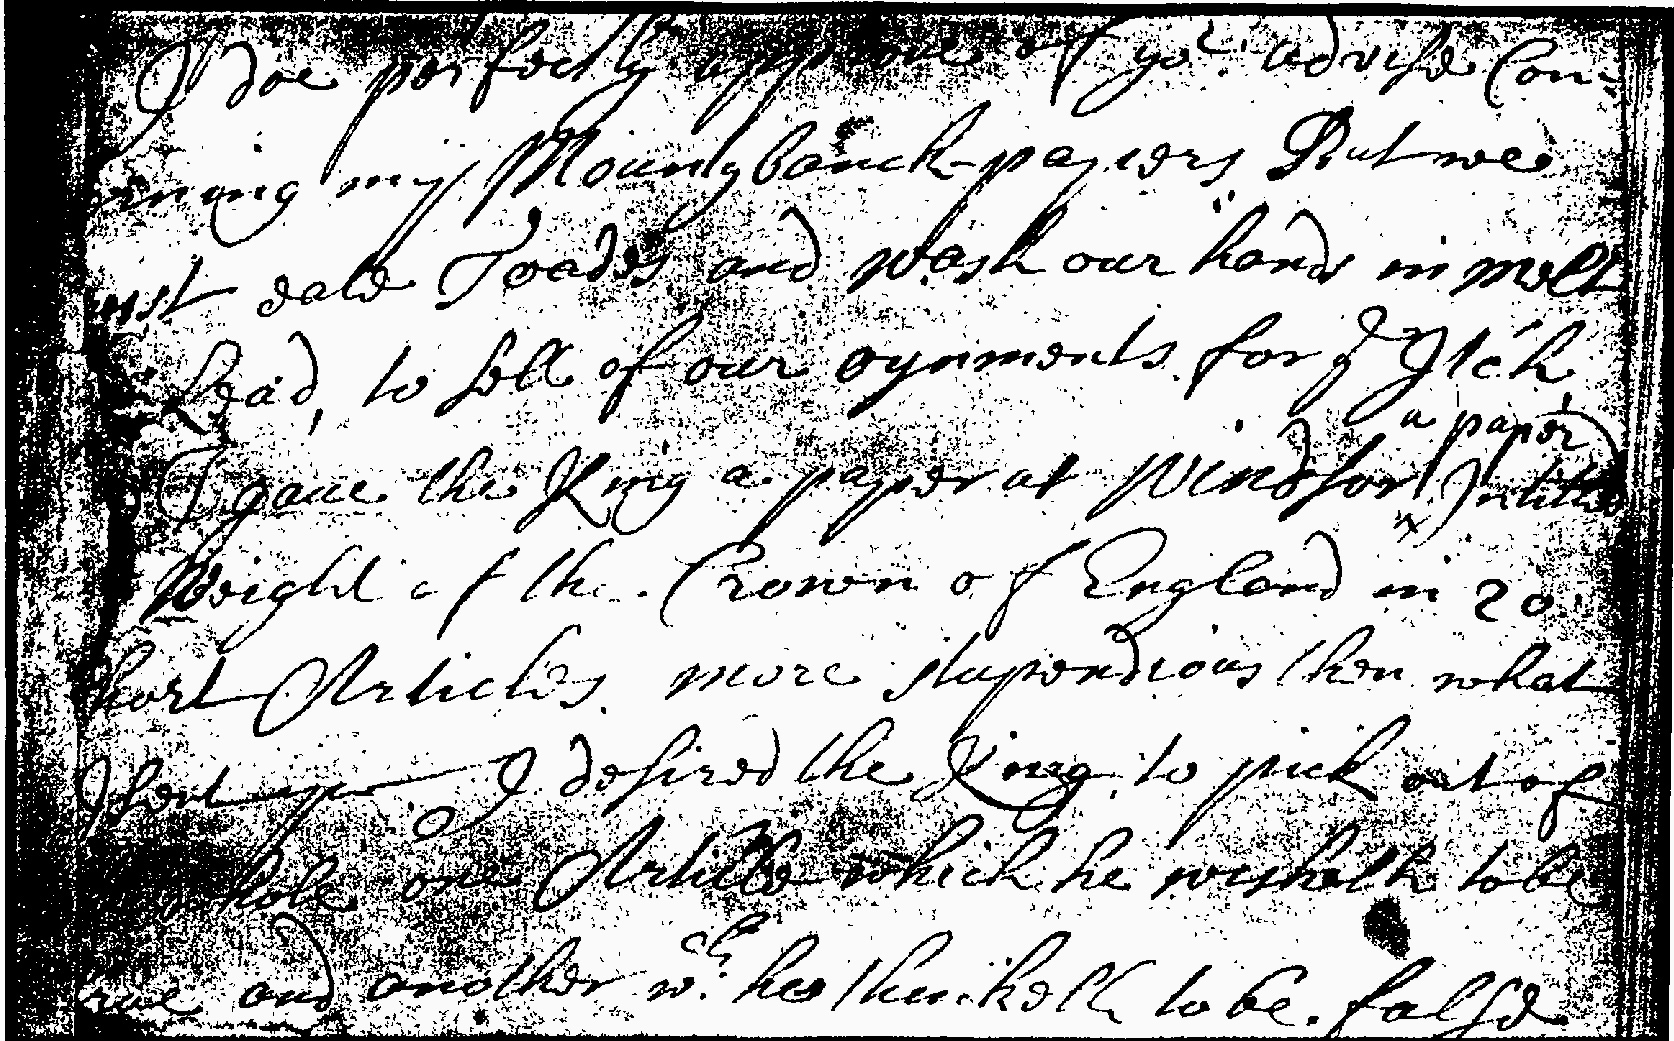 I doe perfectly approve of yor. advise Con-
ning my Mountybanck-papers But wee
must eate Toades and wash our hands in melt
Lead, to sell of our oynments for ye Itch
a paper
I gave the King a paper at Windsor Intitled
Weight of the Crown of England in 20
short Articles more stupendious then what
I sent you I desired the King to pick out of
whole one Article which he wisheth to be
true and another wch. hee thinketh to be false